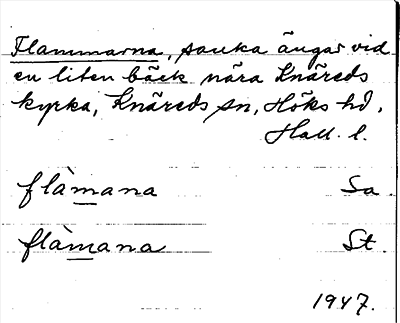 Flammarna, sanka ängar vid
en liten bäck nära Knäreds
kyrka, Knäreds sn, Höks hd,
Hall. l.
flàmana Sa.
flàmana St.
1947.